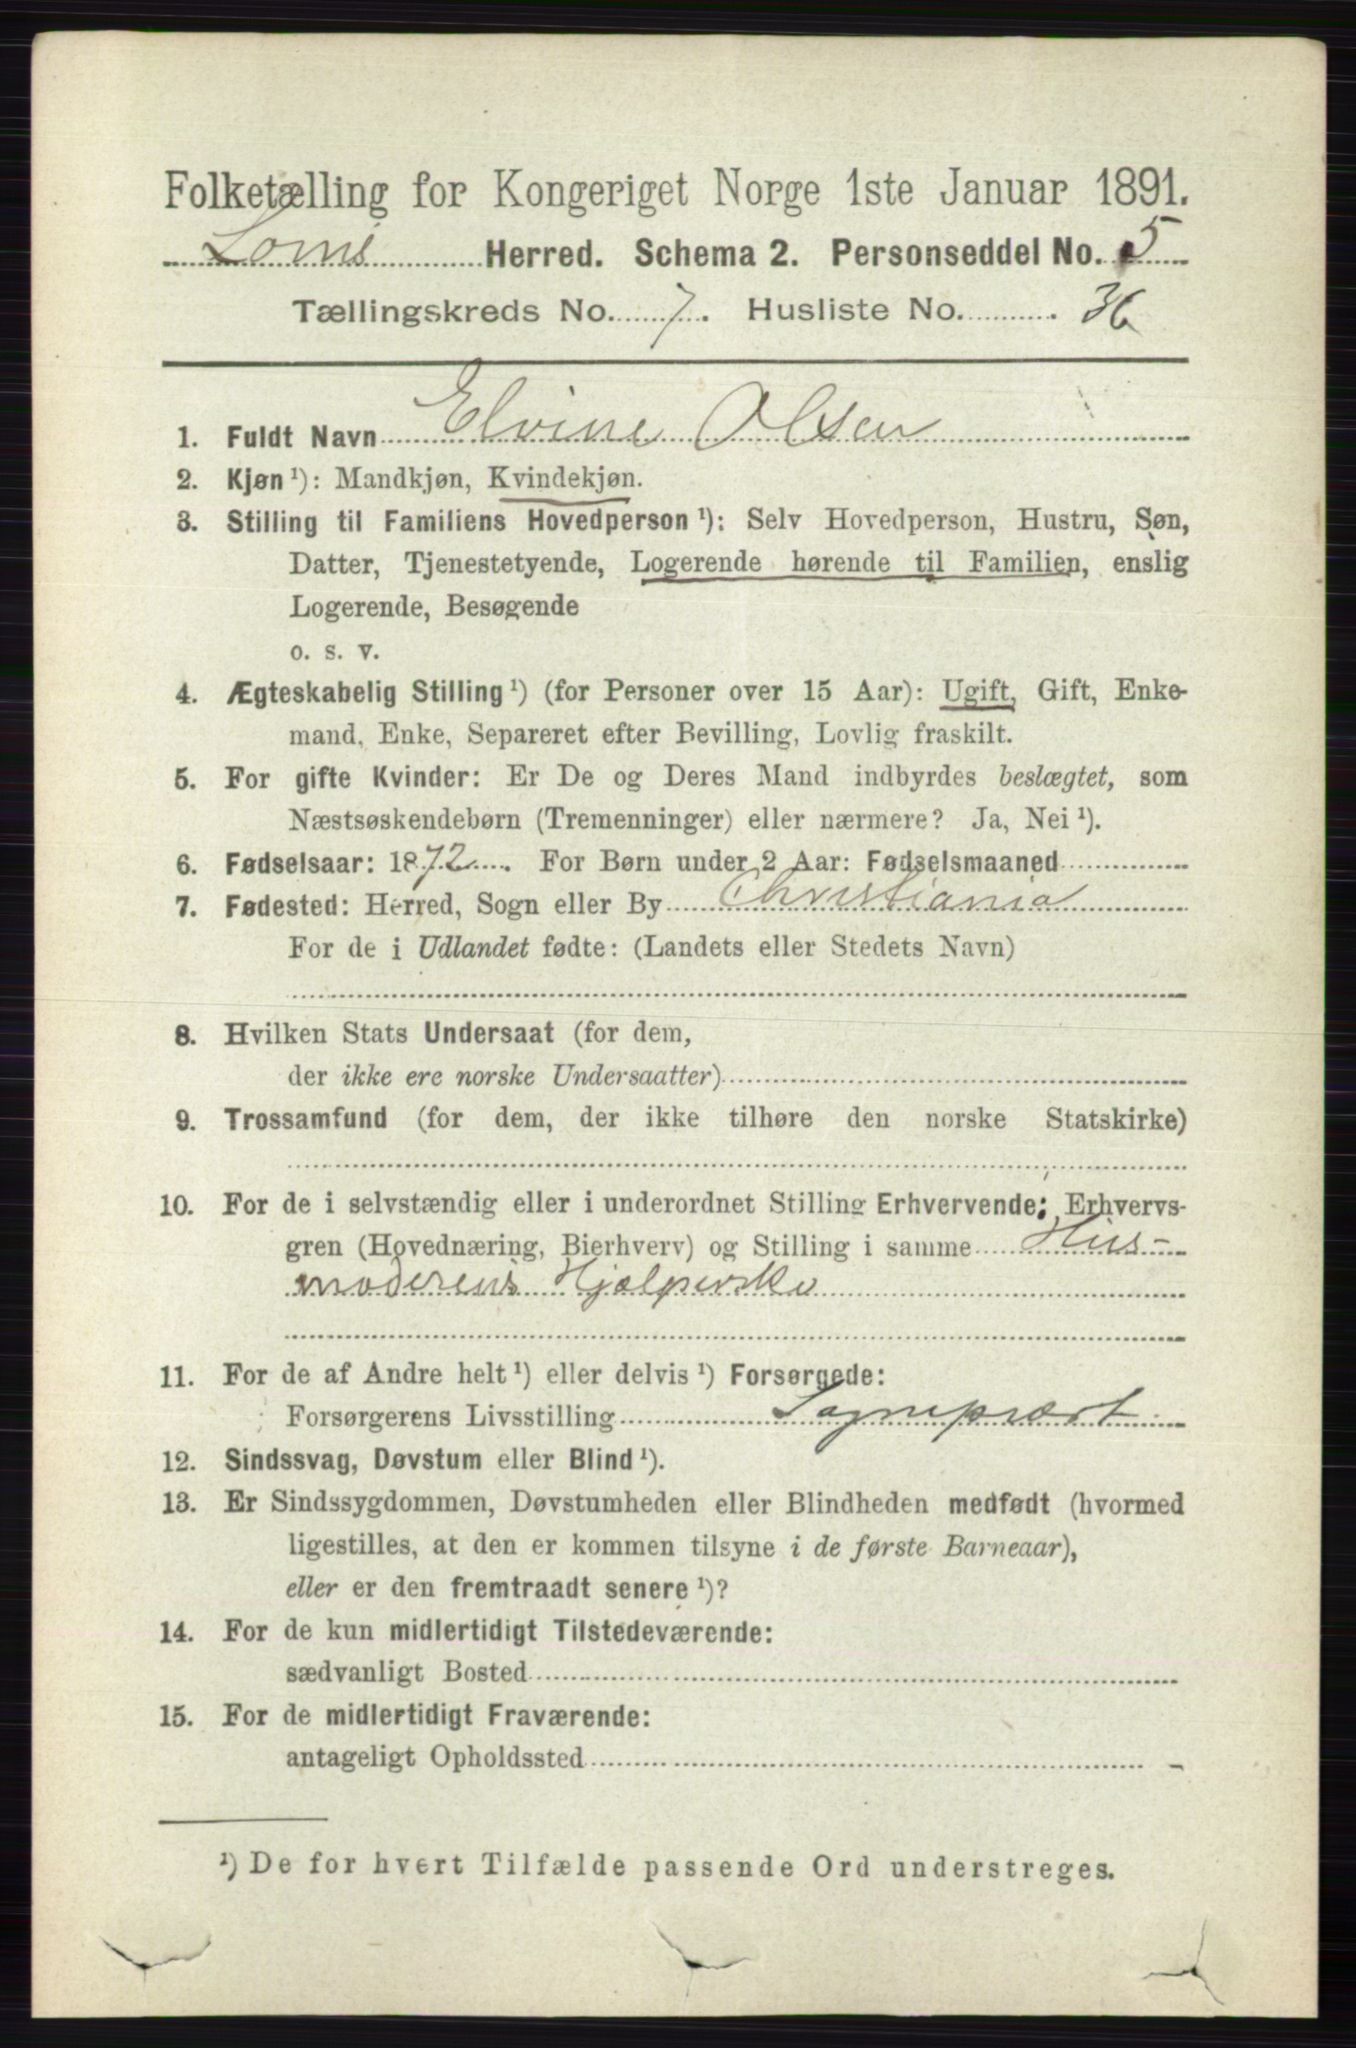 Folketælling for Kongeriget Norge 1ste Januar 1891.
Loms Herred. Schema 2. Personseddel No. 5
Tællingskreds No. 7. Husliste No. 36
1. Fuldt Navn Elvine Olsen
2. Kjøn ¹): Mandkjøn, Kvindekjøn.
3. Stilling til Familiens Hovedperson ¹): Selv Hovedperson, Hustru, Søn,
Datter, Tjenestetyende, Logerende hørende til Familien, enslig
Logerende, Besøgende
o. s. v.
4. Ægteskabelig Stilling ¹) (for Personer over 15 Aar): Ugift, Gift, Enke-
mand, Enke, Separeret efter Bevilling, Lovlig fraskilt.
5. For gifte Kvinder: Er De og Deres Mand indbyrdes beslægtet, som
Næstsøskendebørn (Tremenninger) eller nærmere? Ja, Nei ¹).
6. Fødselsaar: 1872. For Børn under 2 Aar: Fødselsmaaned
7. Fødested: Herred, Sogn eller By Christiania
For de i Udlandet fødte: (Landets eller Stedets Navn)
8. Hvilken Stats Undersaat (for dem,
der ikke ere norske Undersaatter)
9. Trossamfund (for dem, der ikke tilhøre den norske Statskirke)
10. For de i selvstændig eller i underordnet Stilling Erhvervende: Erhvervs-
gren (Hovednæring, Bierhverv) og Stilling i samme Hus-
moderens Hjælperske
11. For de af Andre helt ¹) eller delvis ¹) Forsørgede:
Forsørgerens Livsstilling Sognepræst
12. Sindssvag, Døvstum eller Blind ¹).
13. Er Sindssygdommen, Døvstumheden eller Blindheden medfødt (hvormed
ligestilles, at den er kommen tilsyne i de første Barneaar),
eller er den fremtraadt senere ¹)?
14. For de kun midlertidigt Tilstedeværende:
sædvanligt Bosted
15. For de midlertidigt Fraværende:
antageligt Opholdssted
¹) De for hvert Tilfælde passende Ord understreges.